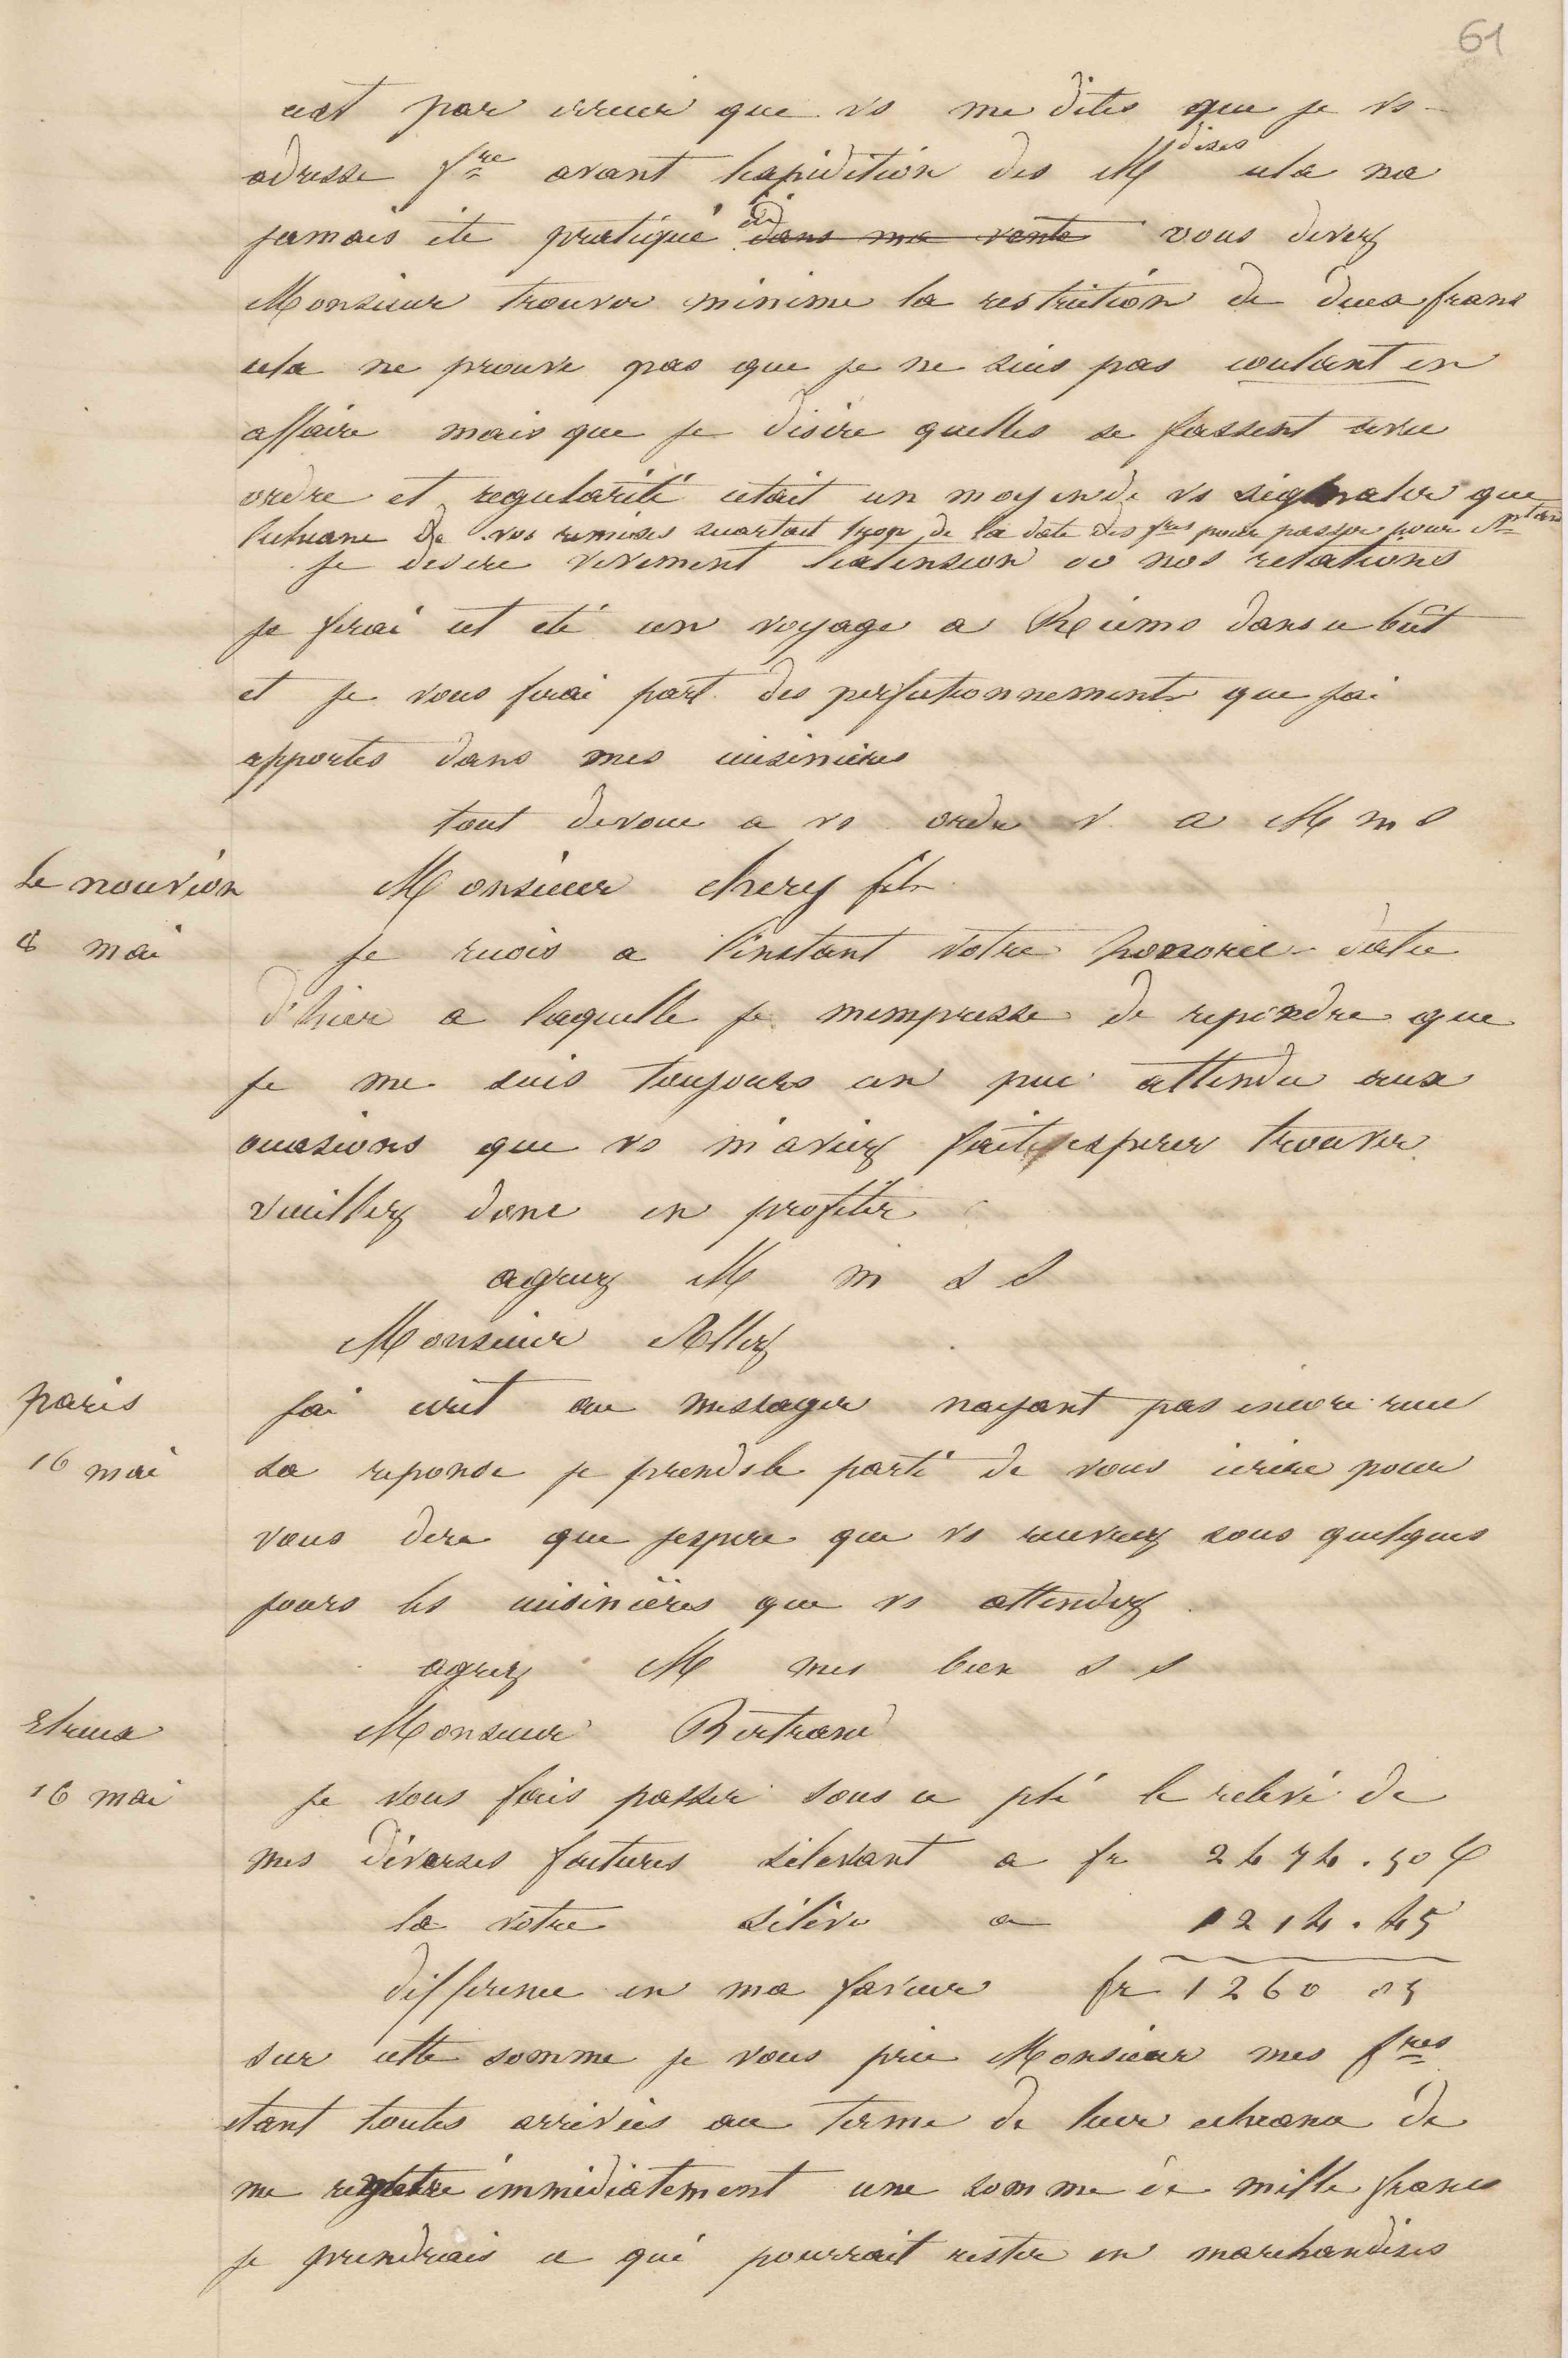 61
cest par erreur que vs me dites que je vs
adresse fre avant lexpidition des Mdises cela na
jamais éte pratiqué ici dans ma vente vous devez
Monsieur trouver minime la restriction de deux francs
cela ne prouve pas que je ne suis pas coulant en
affaire mais que je désire quelles se fassent avec
ordre et regularité cetait un moyen de vs signaler que
lecheance de vos remises secartait trop de la date des fres pour passer pour
je desire vivement lextension de nos relations
je ferai cet eté un voyage a Reims dans ce bût
et je vous ferai part des perfectionnements que jai
apportes dans mes cuisinieres
tout devoue a vs ordre v a M m S
Le nouvion Monsieur chery fils
8 mai je recois a l'instant votre honorée datee
d'hier a laquelle je mempresse de repondre que
je me suis toujours un peu attendu aux
occasions que vs m'aviez fait esperer trouver
veuillez donc en profiter
agreez M m s S
Monsieur Allez
paris jai ecrit au messager nayant pas encore recu
16 mai sa reponse je prends le parti de vous ecrire pour
vous dire que jespere que vs recevrez sous quelques
jours les cuisinières que vs attendez
agreez M mes bien s s
Etreux Monsieur Bertrand
16 mai je vous fais passer sous ce pli le relevé de
mes diverses factures selevant a fr 2474.50
la votre séléve a 1214.45
difference en ma faveur fr 1260 05
sur cette somme je vous prie Monsieur mes fres
etant toutes arrivées au terme de leur echeance de
me remettre immédiatement une somme de mille francs
je prendrais ce qui pourrait rester en marchandises